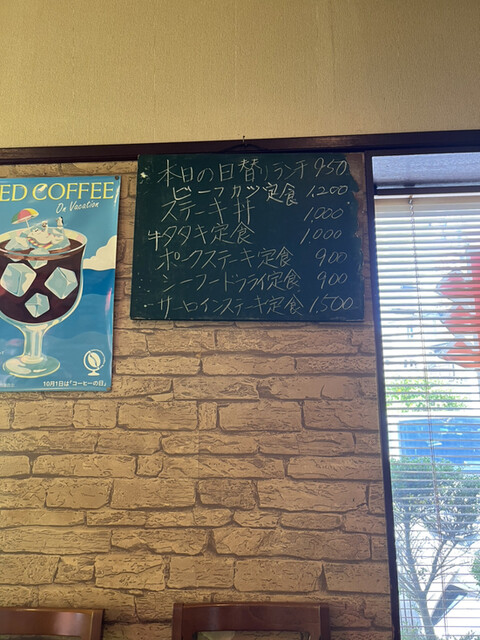 ED COFFEE
On Vacation
10月1日は「コーヒーの日」
本日の日替ランチ 950
ビーフカツ定食 1,200
ステーキ丼 1,000
牛タタキ定食 1,000
ポークステーキ定食 900
シーフードフライ定食 900
サーロインステーキ定食 1,500